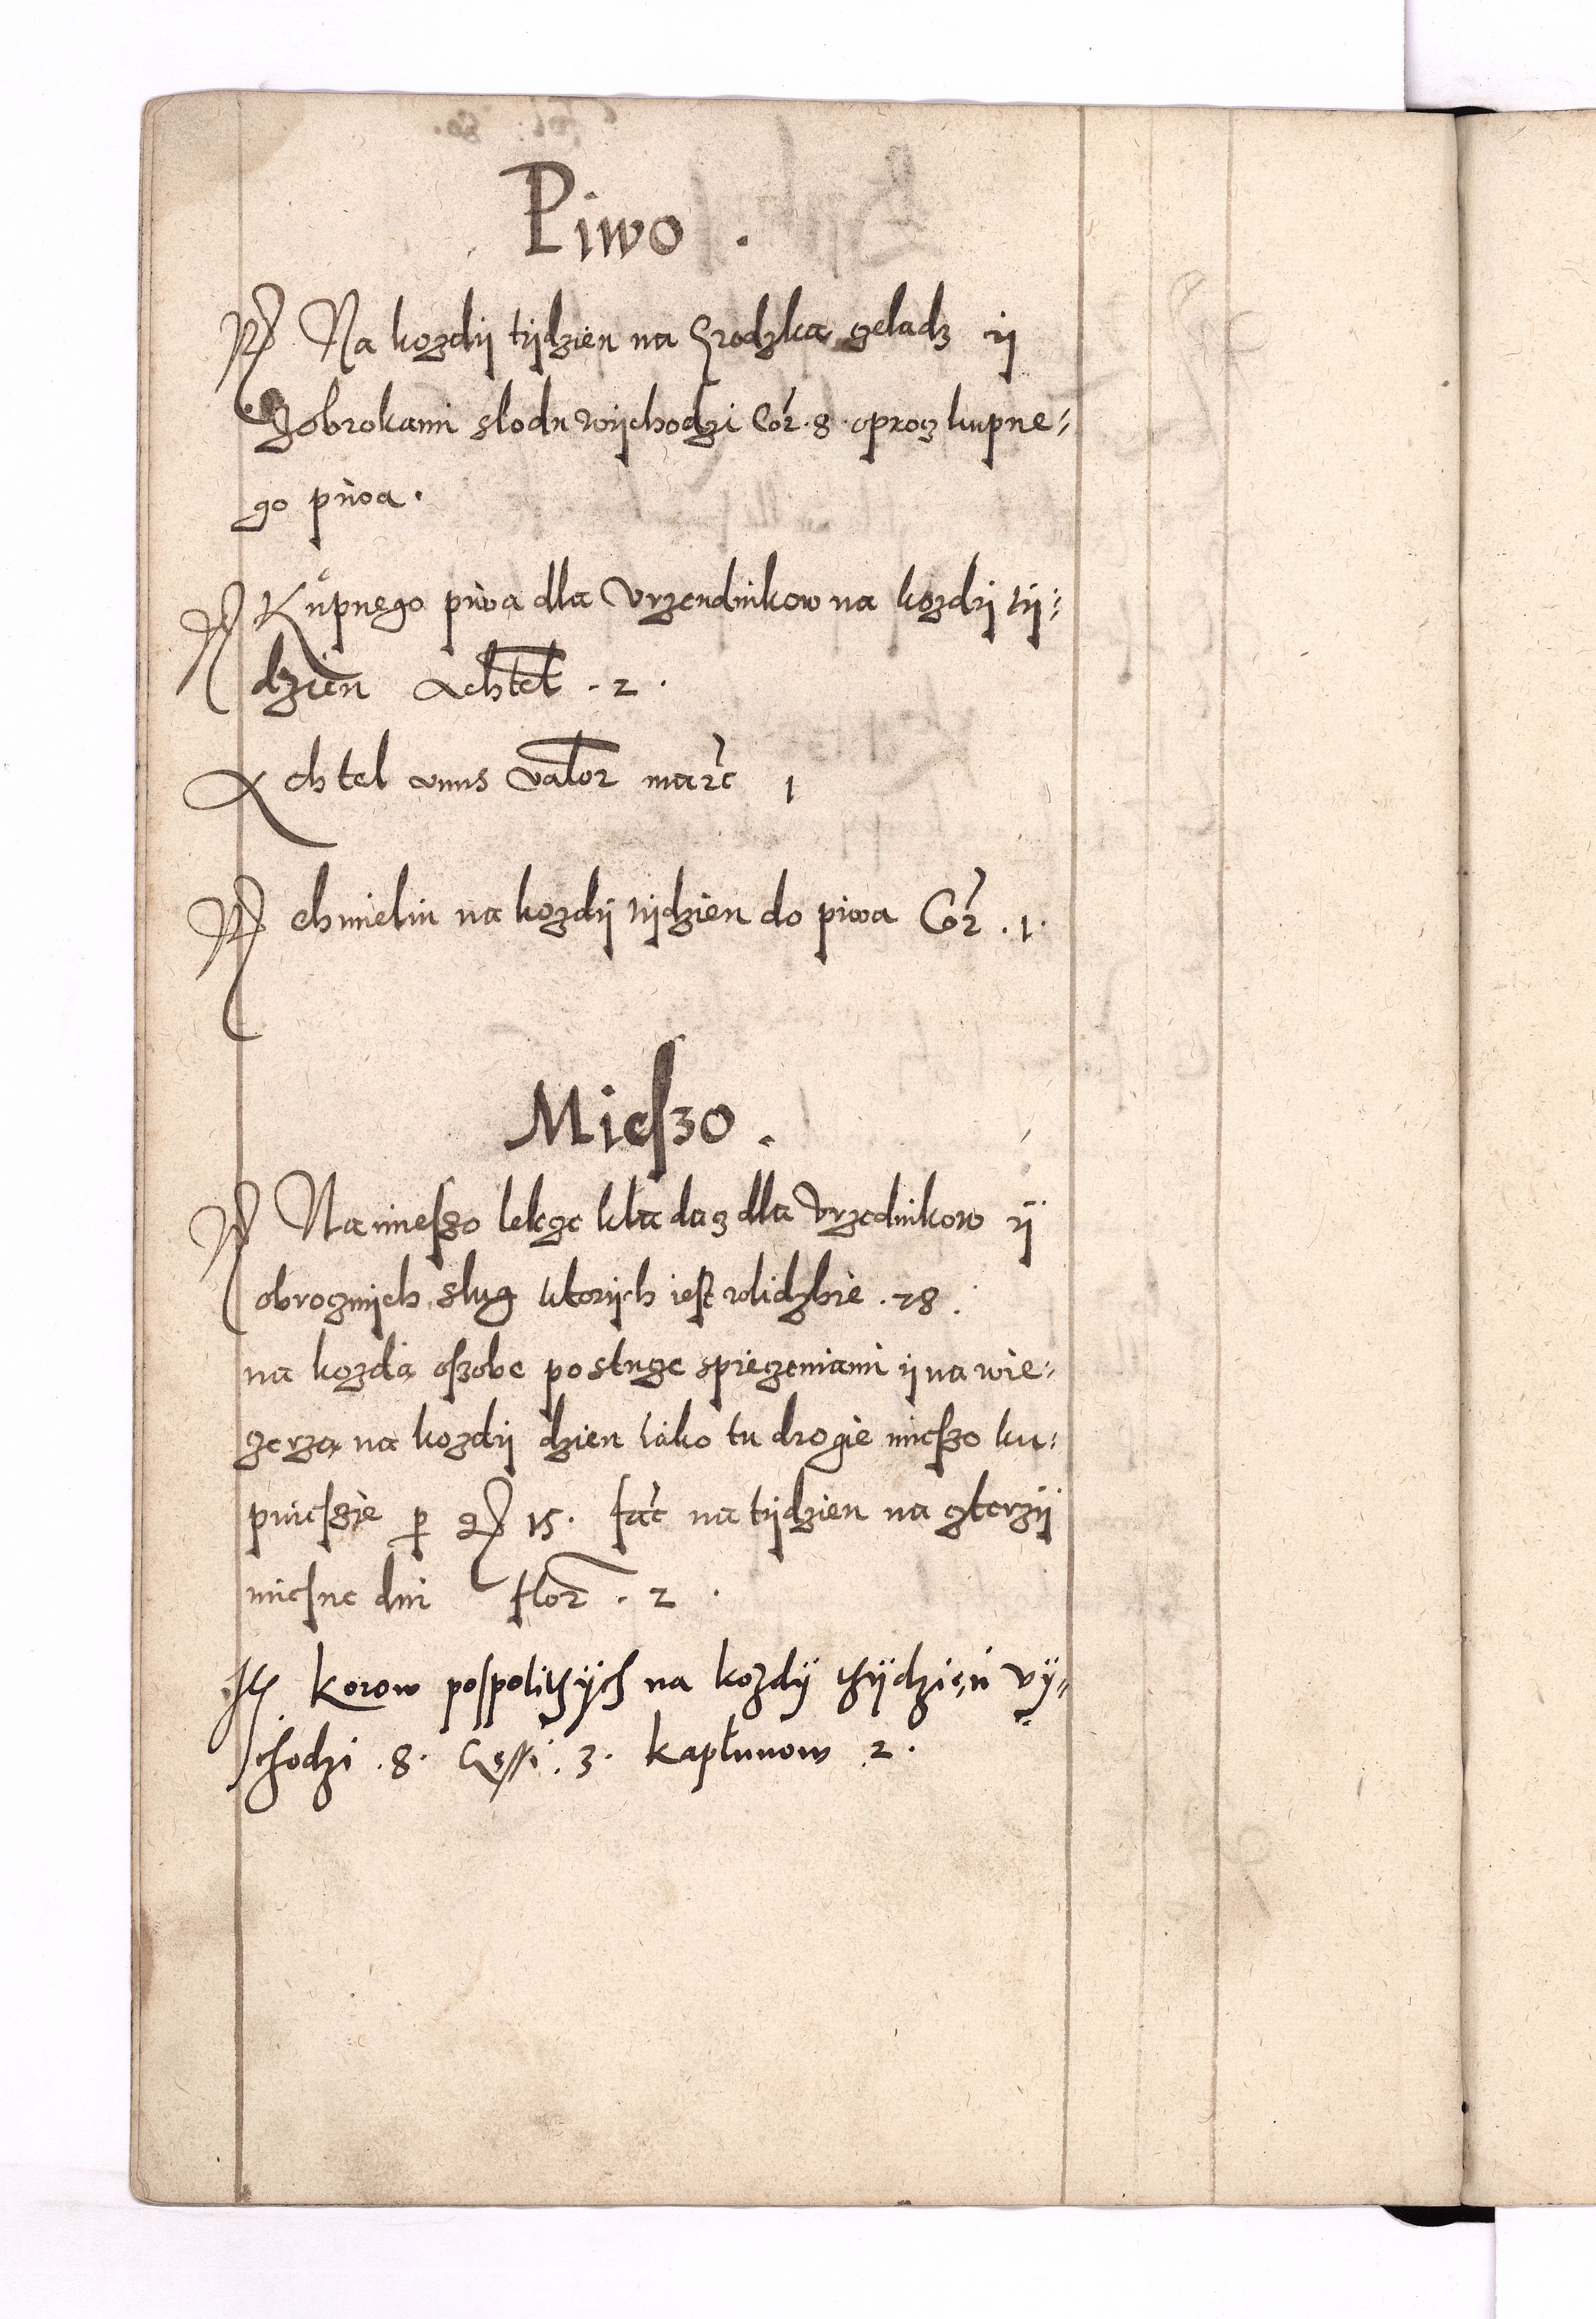 Piwo .
Na kozdij tijdzien na Grodzka geladz ij
zobrokami slodu wijchodzi Cor. 8. oprocz kupne-
go piwa.
Kupnego piwa dla Vrzendnikow na kozdij tij-
dzien Achtel . 2 .
Achtel vnus valor marc 1
chmieliu na kozdij tijdzien do piwa Cor . 1.
Mieszo .
Na mieszo lekge kladacz dla Vrzednikow ij
obrocznijch slug ktorijch iest wlidzbie . 28 .
na kozda oszobe postuge spiegzeniami ij na wie-
gerza na kozdij dzien Iako tu drogie mieszo ku-
puieszie per g 15. fac na tijdzien na gterzij
miesne dni flor . 2 .
It. Korow pospolithÿch na kozdÿ thÿdzięń vÿ-
chodzi . 8. Gęssi . 3. kapłunow 2 .